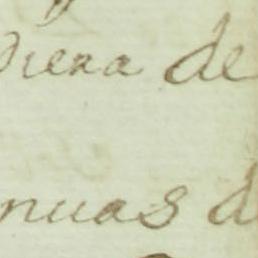 diera de
nuas d